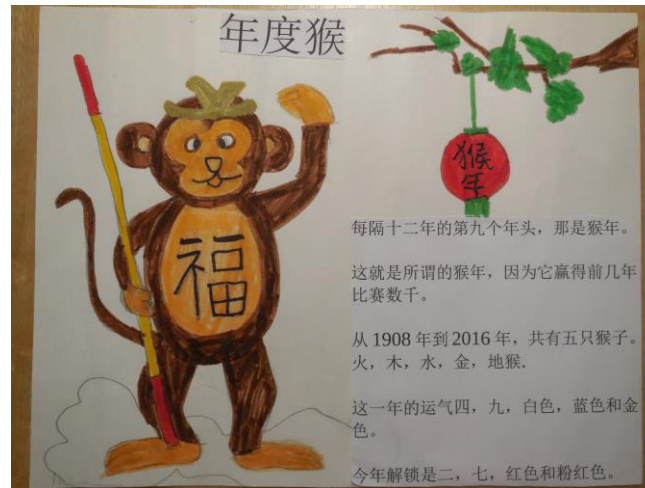 年度猴
猴
年
福
每隔十二年的第九个年头，那是猴年。
这就是所谓的猴年，因为它赢得前几年
比赛数千。
从 1908 年到 2016 年，共有五只猴子。
火，木，水，金，地猴.
这一年的运气四，九，白色，蓝色和金
色。
今年解锁是二，七，红色和粉红色。